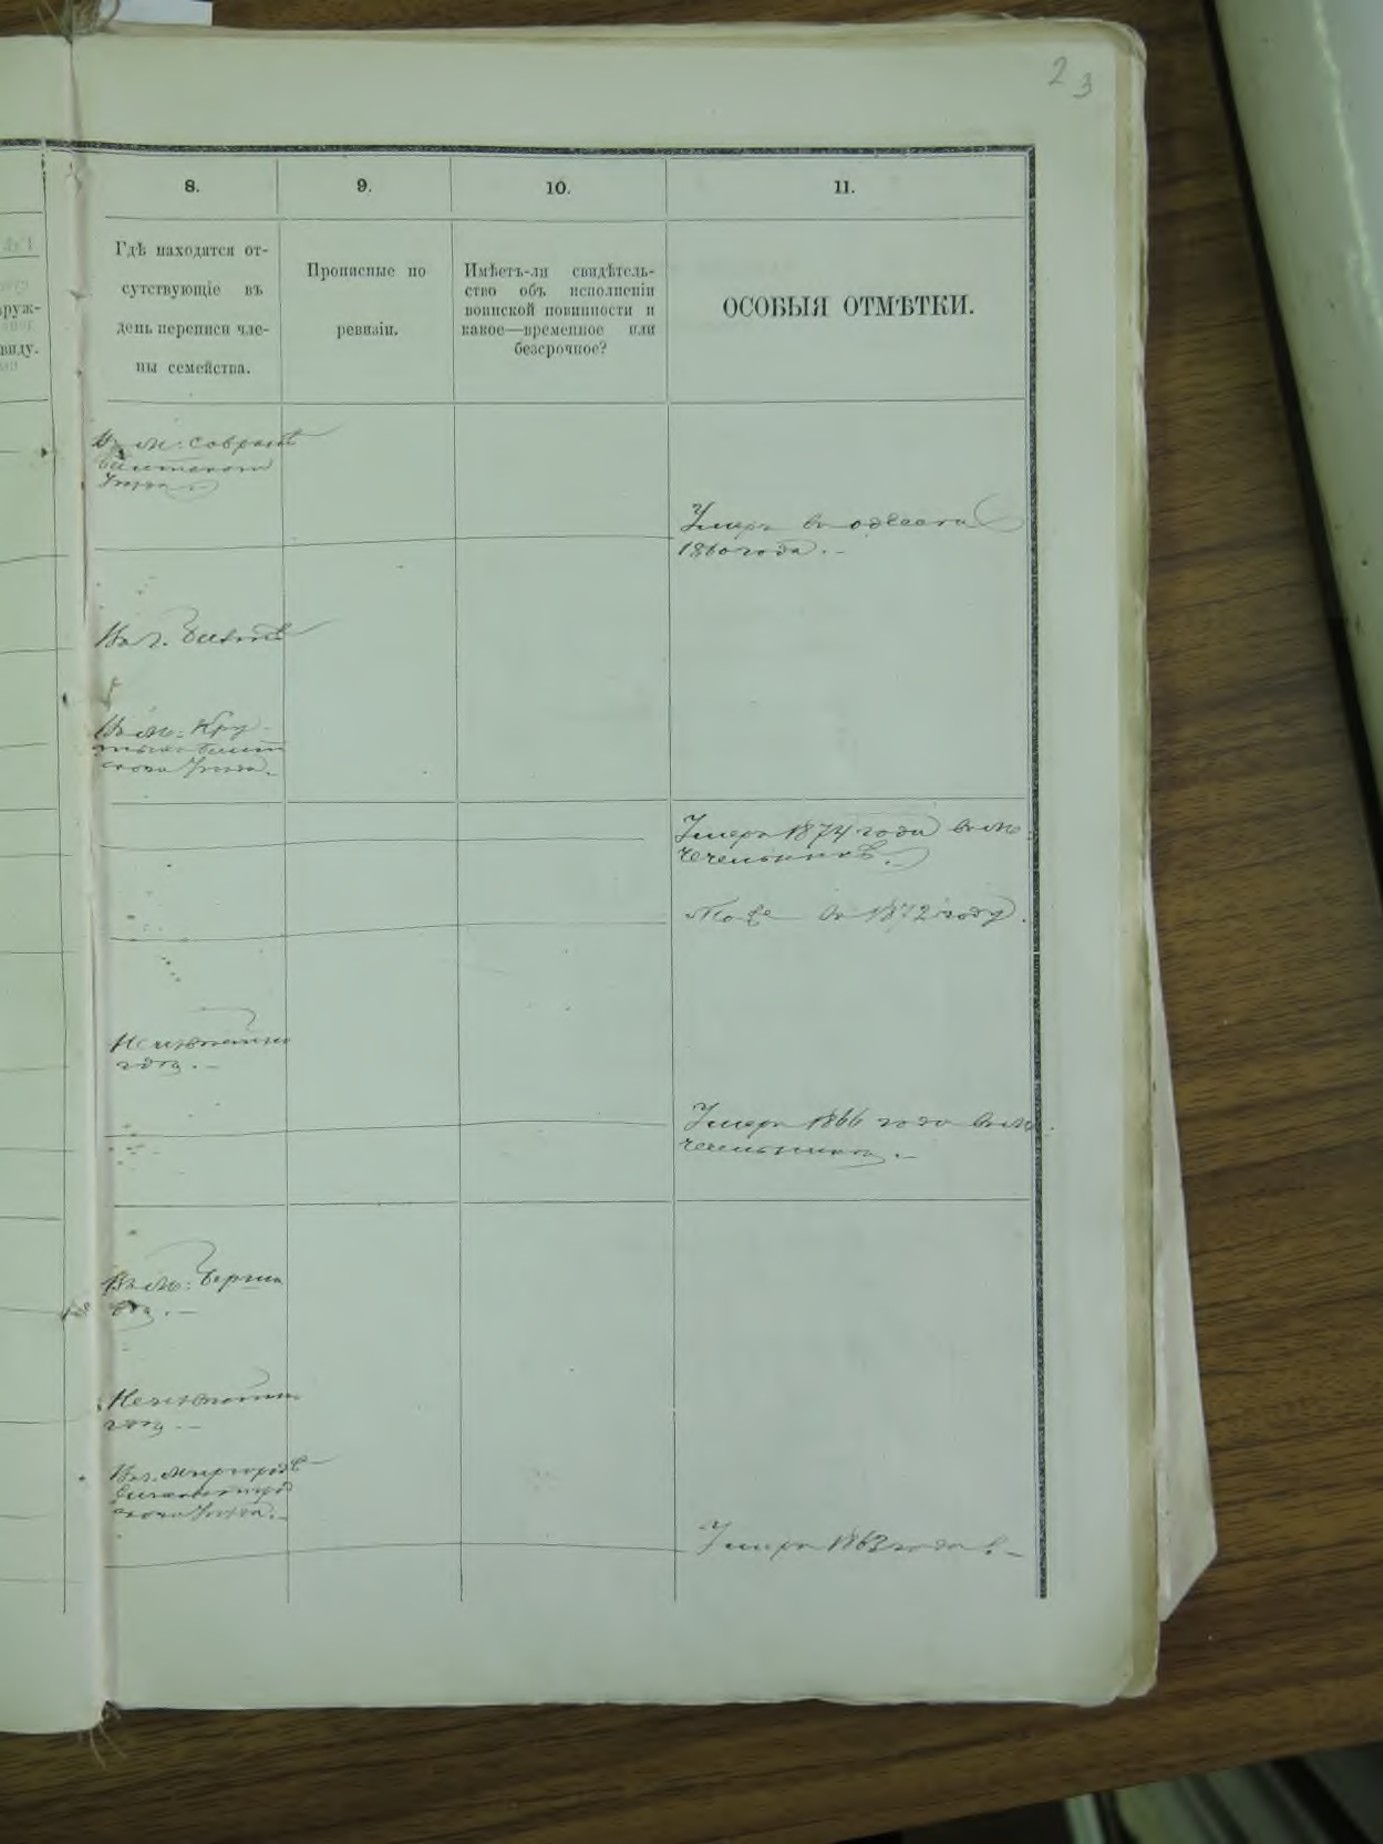 23
8.
9.
10.
11.
Гдѣ находятся от-
сутствующіе въ
день переписи чле-
ны семейства.
Прописные по
ревизіи.
Имѣетъ-ли свидѣтель-
ство объ исполненіи
воинской повинности и
какое—временное или
безсрочное?
ОСОБЫЯ ОТМѢТКИ.
оруж-
виду.
Въ м:
Умеръ въ одесса
1860 года.-
Въ г. Балтѣ
Въ м: Кру-
Умеръ 1874 года въ м:
чечельникѣ.
Тоже въ 1872 году.
Неизвѣстно
гдѣ.-
Умеръ 1866 года въ м:
чечельникѣ.-
Въ м: Берша
дѣ.-
Неизвѣстно
гдѣ --
Умеръ 1863 года